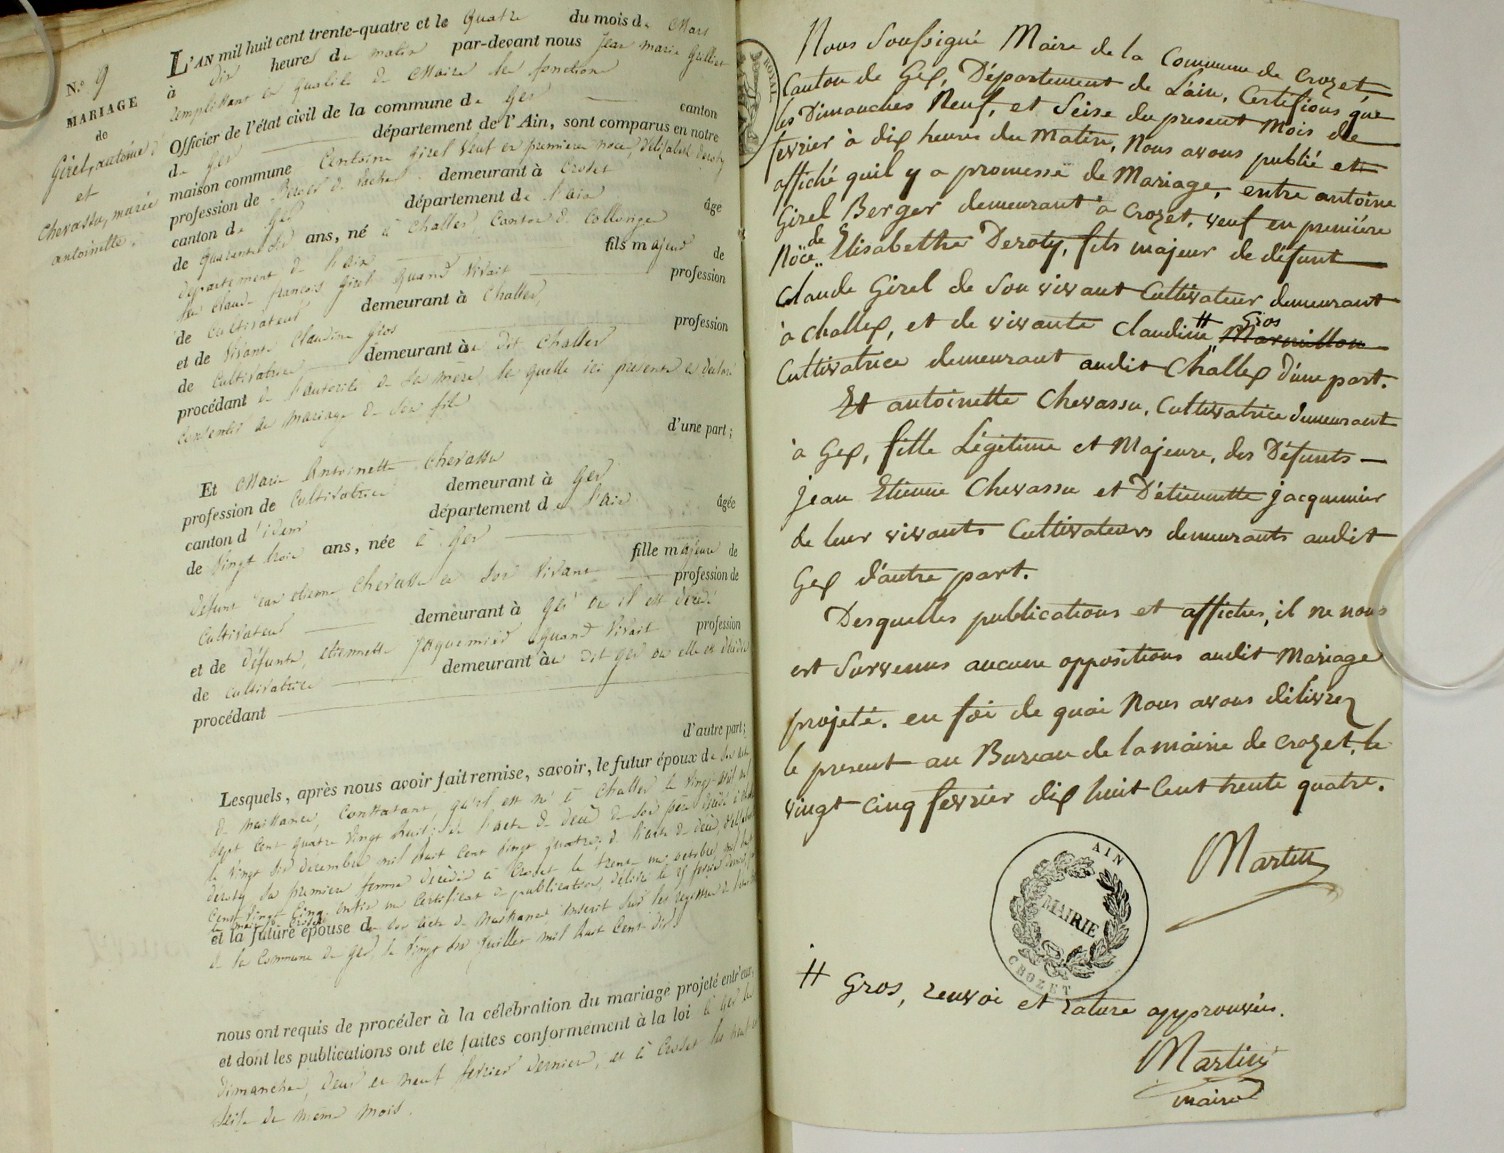 N.º 9
MARIAGE
de
Girel, antoine
et
Chevassu, marie
antoinette.
L'AN mil huit cent trente-quatre et le quatre du mois de Mars
à dix heure du matin par-devant nous Jean Marie
remplissant en qualité de Maire les fonctions
Officier de l'état civil de la commune de Gex canton
de Gex département de l'Ain, sont comparus en notre
maison commune Antoine Girel veuf en première noce, d'Elizabeth Deroty
profession de Berger de Vaches demeurant à Crozet
canton de Gex département de l'ain âgé
de quarante six ans, né à Challex Canton de Collonge
département de l'ain fils majeur de
feu Claude françois Girel quand vivait profession
de cultivateur demeurant à Challex,
et de vivante Claudine Gros profession
de cultivatrice demeurant au dit Challex
procédant de l'autorité de sa mere, la quelle ici presente a déclaré
consentir au mariage de son fils
d'une part;
Et Marie Antoinette Chevassu
profession de Cultivatrice demeurant à Gex
canton d'idem département de l'ain âgée
de vingt trois ans, née à Gex
fille majeure de
défunt jean etienne Chevassu en son vivant profession de
Cultivateur demeurant à Gex où il est décédé
et de défunte, etiennette jaquemier quand vivait profession
de cultivatrice demeurant au dit Gex où elle est décédée
procédant
d'autre part;
Lesquels, après nous avoir fait remise, savoir, le futur époux de son acte
de naissance, Constatant, qu'il est né à Challex le vingt-huit mai
sept Cent quatre vingt huit; de l'acte de décès de son père décédé à
le vingt six decembre mil huit Cent vingt quatre; de l'acte de décès, d'Elizabeth
deroty sa premiere femme décédée à Crozet le trente un octobre mil huit
Cent vingt Cinq enfin un Certificat de publication, délivré le 25 fevrier dernier
le maire de Crozet
et la future épouse de son acte de naissance inscrit sur les registres de
de la Commune de Gex le vingt six juillet mil huit Cent dix
nous ont requis de procéder à la célébration du mariage projeté entr'eux,
et dont les publications ont été faites conformément à la loi à Gex les
dimanches, deux et neuf fevrier dernier, et à Crozet les neuf et
seize du meme mois.
ROYAL
Nous Soussigné Maire de la Commune de Crozet
Canton de Gex, Département de L'ain, Certifions que
les Dimanches Neuf, et Seise du present Mois de
fevrier à dix heures du Matin, Nous avons publié et
affiché quil y a promesse de Mariage, entre antoine
Girel Berger demeurant à Crozet, veuf en premiére
Nöce de Elisabethe Deroty, fils majeur de défunt
Claude Girel de Son vivant Cultivateur demeurant
à Challex, et de vivante Claudine # Gros Marmillon
Cultivatrice demeurant audit Challex d'une part.
Et antoinette Chevassu, Cultivatrice demeurant
à Gex, fille Légitime et Majeure, des Défunts
jean Etienne Chevassu et D'étiennette jacquemier
de leur vivants Cultivateurs demeurants audit
Gex d'autre part.
Desquelles publications et affiches, il ne nous
est Survenus aucune oppositions audit Mariage
projeté. en foi de quoi Nous avons délivrez
le present au Bureau de la mairie de Crozet, le
vingt cinq fevrier dix huit Cent trente quatre.
Martin
AIN
MAIRIE
CROZET
# Gros, renvoi et rature approuvés.
Martin
maire